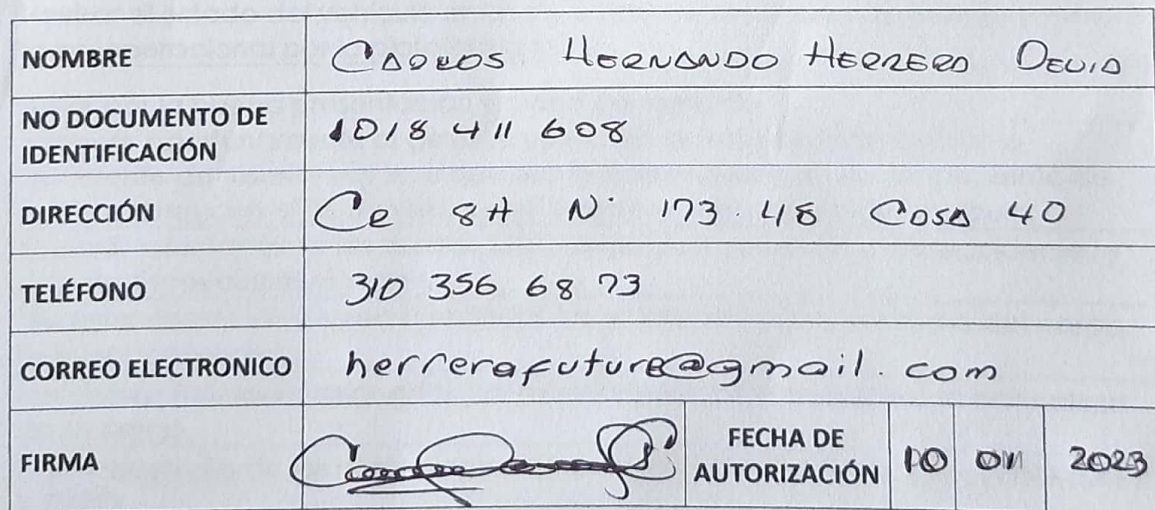 NOMBRE CARLOS HERNANDO HERRERA
NO DOCUMENTO DE
IDENTIFICACIÓN 1018 411 608
DIRECCIÓN 8H N. 173 48 CASA 40
TELÉFONO 310 356 68 73
CORREO ELECTRONICO herrerafuture@gmail.com
FIRMA
FECHA DE
AUTORIZACIÓN 10 2023